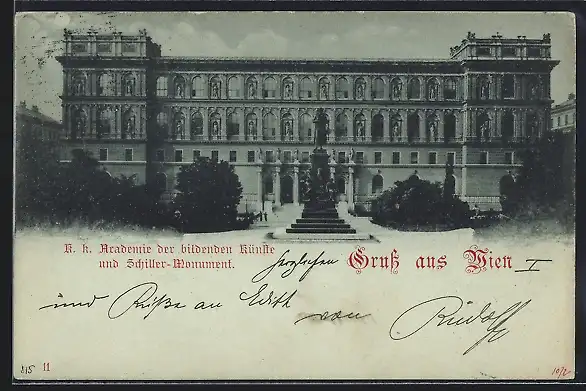 K. k. Academie der bildenden Künste
und Schiller-Monument.
Gruß aus Wien I
herzlichen
und Küße an Edith
von Rudolf
815 11
10/2